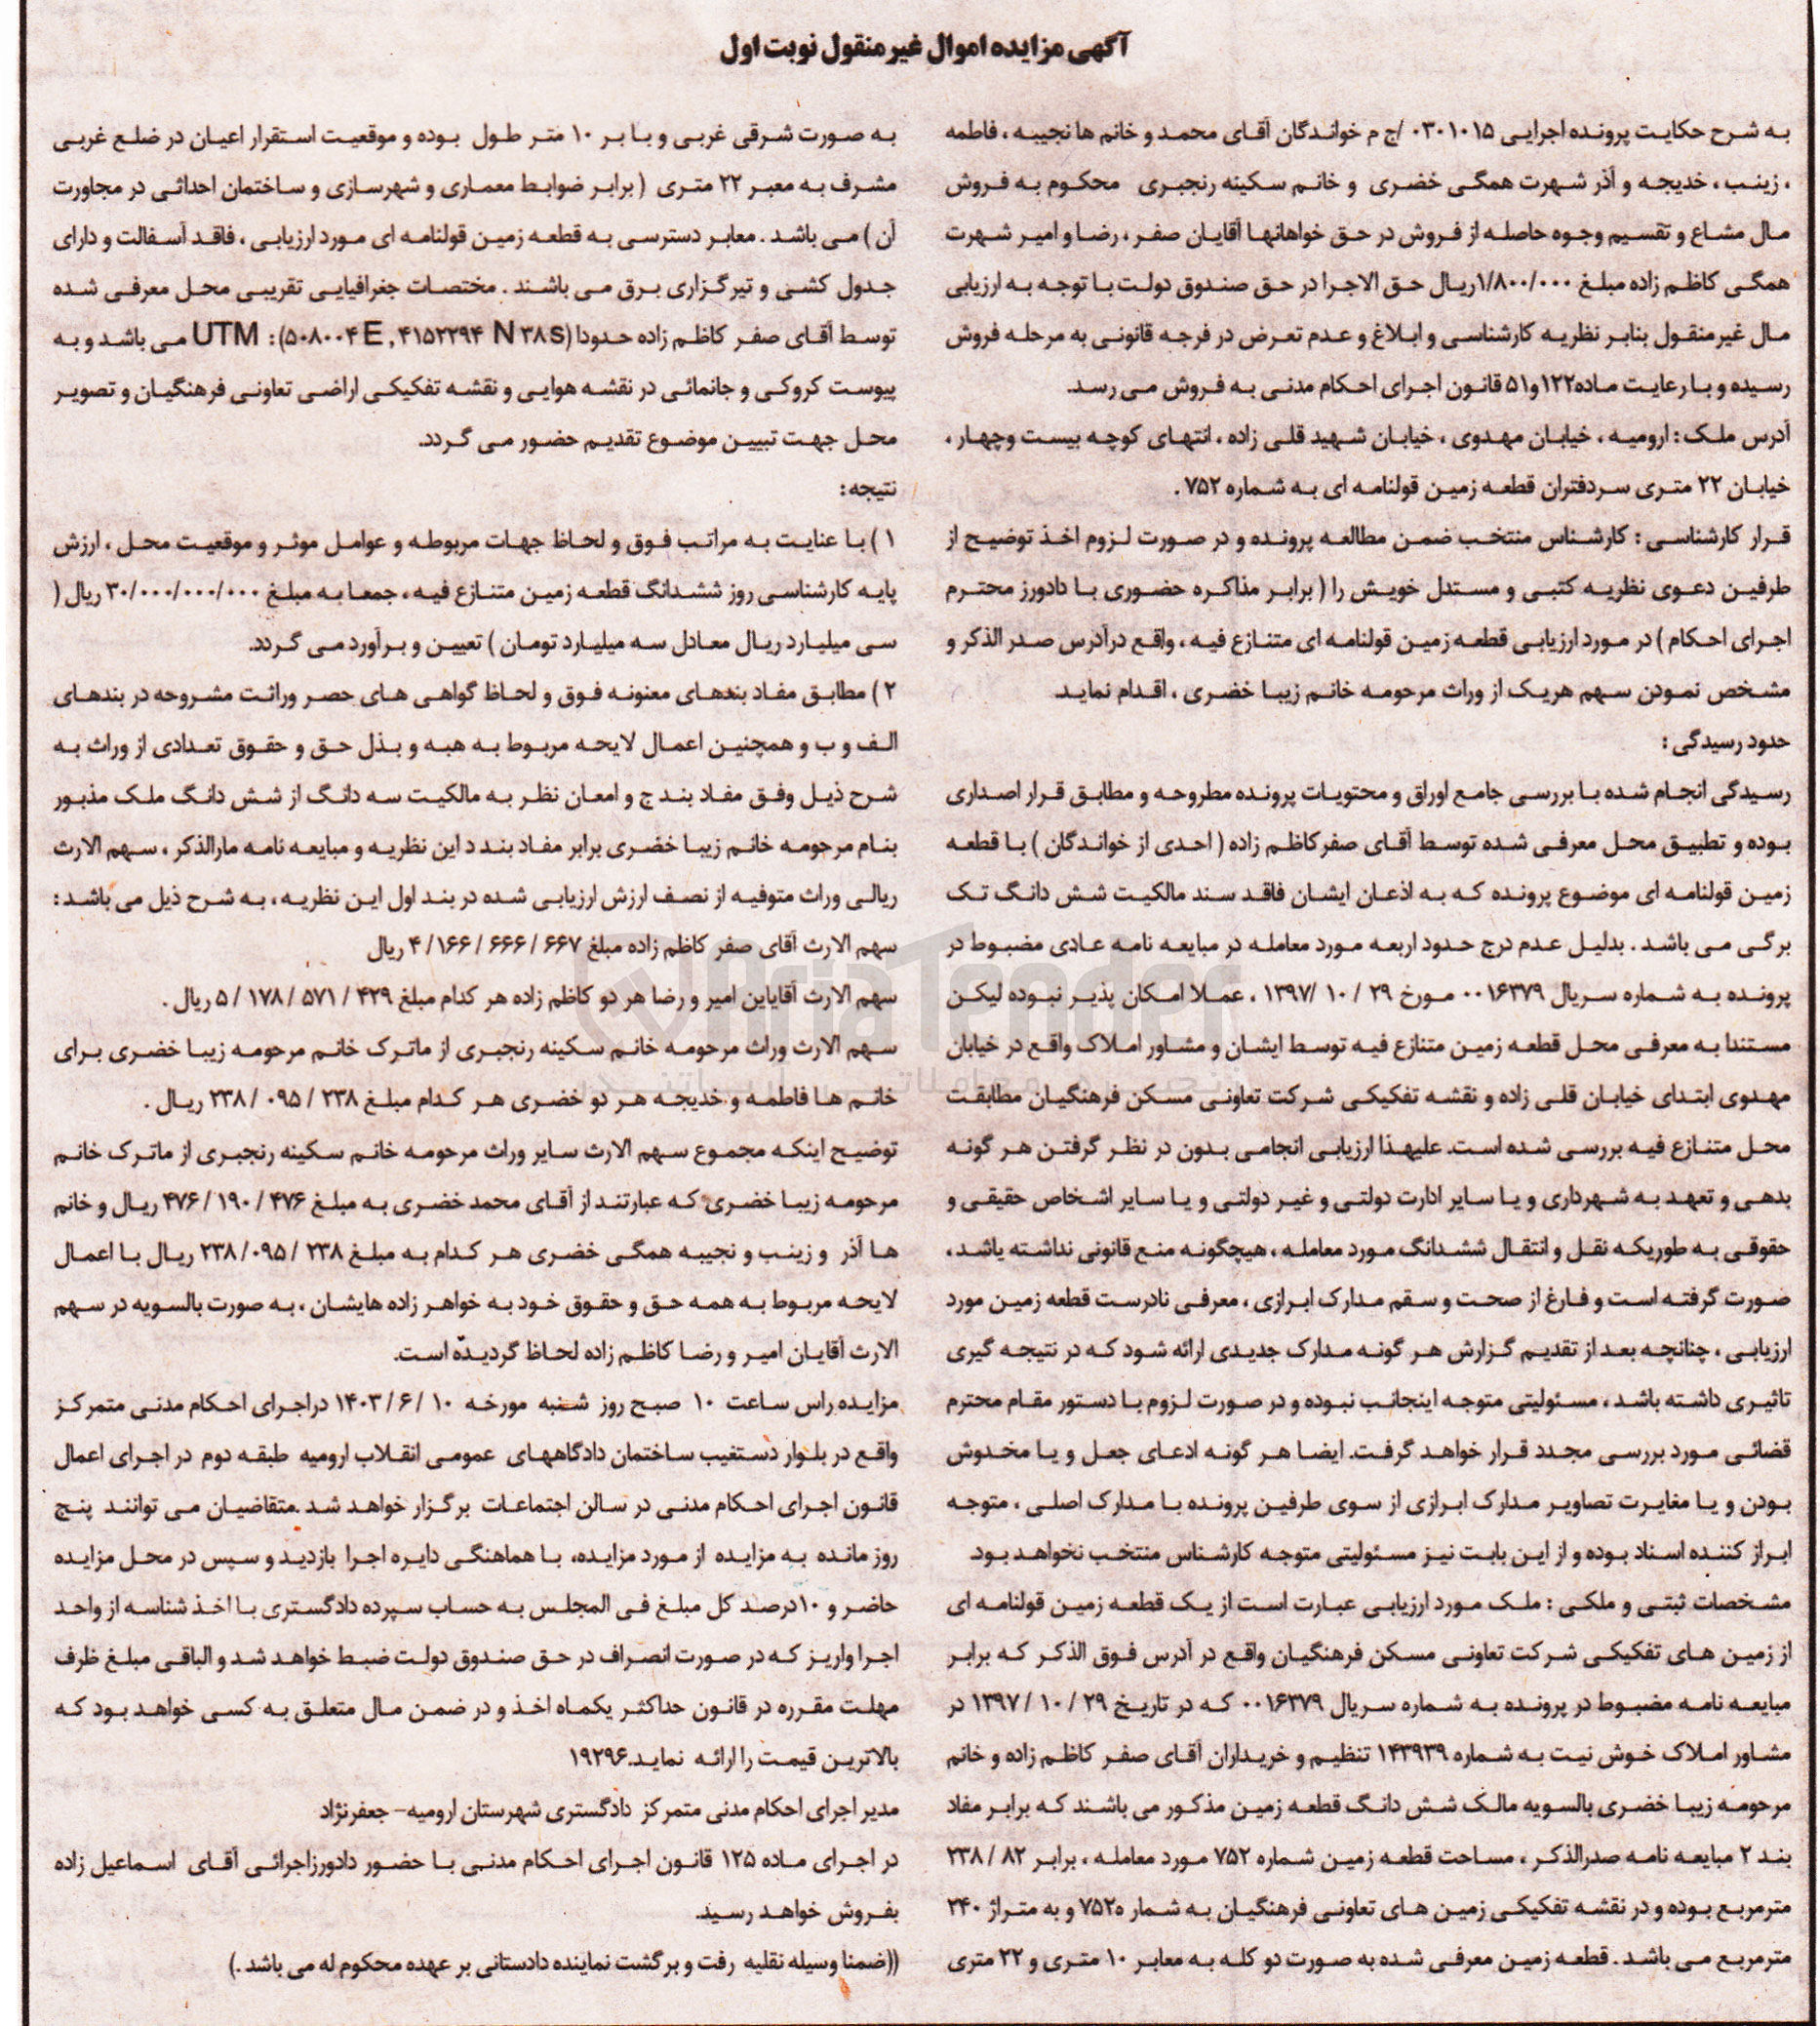 آگهی مزایده اموال غیر منقول نوبت اول
به شرح حکایت پرونده اجرایی ۰۳۰۱۰۱۵ /ج م خواندگان آقای محمد و خانم ها نجیبه ، فاطمه
، زینب ، خدیجه و آذر شهرت همگی خضری و خانم سکینه رنجبری محکوم به فروش
مال مشاع و تقسیم وجوه حاصله از فروش در حق خواهانها آقایان صفر ، رضا و امیر شهرت
همگی کاظم زاده مبلغ ۱/۸۰۰/۰۰۰ریال حق الاجرا در حق صندوق دولت با توجه به ارزیابی
مال غیرمنقول بنابر نظریه کارشناسی و ابلاغ و عدم تعرض در فرجه قانونی به مرحله فروش
رسیده و با رعایت ماده۱۲۲و۵۱ قانون اجرای احکام مدنی به فروش می رسد.
آدرس ملک : ارومیه ، خیابان مهدوی ، خیابان شهید قلی زاده ، انتهای کوچه بیست وچهار ،
خیابان ۲۲ متری سردفتران قطعه زمین قولنامه ای به شماره ۷۵۲ .
قرار کارشناسی : کارشناس منتخب ضمن مطالعه پرونده و در صورت لزوم اخذ توضیح از
طرفین دعوی نظریه کتبی و مستدل خویش را ( برابر مذاکره حضوری با دادورز محترم
اجرای احکام ) در مورد ارزیابی قطعه زمین قولنامه ای متنازع فیه ، واقع درآدرس صدر الذکر و
مشخص نمودن سهم هریک از وراث مرحومه خانم زیبا خضری ، اقدام نماید.
حدود رسیدگی :
رسیدگی انجام شده با بررسی جامع اوراق و محتویات پرونده مطروحه و مطابق قرار اصداری
بوده و تطبیق محل معرفی شده توسط آقای صفرکاظم زاده ( احدی از خواندگان ) با قطعه
زمین قولنامه ای موضوع پرونده که به اذعان ایشان فاقد سند مالکیت شش دانگ تک
برگی می باشد . بدلیل عدم درج حدود اربعه مورد معامله در مبایعه نامه عادی مضبوط در
پرونده به شماره سریال ۰۰۱۶۳۷۹ مورخ ۲۹ / ۱۰ /۱۳۹۷ ، عملا امکان پذیر نبوده لیکن
مستندا به معرفی محل قطعه زمین متنازع فیه توسط ایشان و مشاور املاک واقع در خیابان
مهدوی ابتدای خیابان قلی زاده و نقشه تفکیکی شرکت تعاونی مسکن فرهنگیان مطابقت
محل متنازع فیه بررسی شده است. علیهذا ارزیابی انجامی بدون در نظر گرفتن هر گونه
بدهی و تعهد به شهرداری و یا سایر ادارت دولتی و غیر دولتی و یا سایر اشخاص حقیقی و
حقوقی به طوریکه نقل و انتقال ششدانگ مورد معامله ، هیچگونه منع قانونی نداشته یاشد ،
صورت گرفته است و فارغ از صحت و سقم مدارک ابرازی ، معرفی نادرست قطعه زمین مورد
ارزیابی ، چنانچه بعد از تقدیم گزارش هر گونه مدارک جدیدی ارائه شود که در نتیجه گیری
تاثیری داشته باشد ، مسئولیتی متوجه اینجانب نبوده و در صورت لزوم با دستور مقام محترم
قضائی مورد بررسی مجدد قرار خواهد گرفت. ایضا هر گونه ادعای جعل و یا مخدوش
بودن و یا مغایرت تصاویر مدارک ابرازی از سوی طرفین پرونده با مدارک اصلی ، متوجه
ابراز کننده اسناد بوده و از این بابت نیز مسئولیتی متوجه کارشناس منتخب نخواهد بود.
مشخصات ثبتی و ملکی : ملک مورد ارزیابی عبارت است از یک قطعه زمین قولنامه ای
از زمین های تفکیکی شرکت تعاونی مسکن فرهنگیان واقع در آدرس فوق الذکر که برابر
مبایعه نامه مضبوط در پرونده به شماره سریال ۰۰۱۶۳۷۹ که در تاریخ ۲۹ / ۱۰ / ۱۳۹۷ در
مشاور املاک خوش نیت به شماره ۱۴۳۹۳۹ تنظیم و خریداران آقای صفر کاظم زاده و خانم
مرحومه زیبا خضری بالسویه مالک شش دانگ قطعه زمین مذکور می باشند که برابر مفاد
بند ۲ مبایعه نامه صدرالذکر ، مساحت قطعه زمین شماره ۷۵۲ مورد معامله ، برابر ۸۲ / ۲۳۸
مترمربع بوده و در نقشه تفکیکی زمین های تعاونی فرهنگیان به شمار ه۷۵۲ و به متراژ ۲۴۰
مترمربع می باشد . قطعه زمین معرفی شده به صورت دو کله به معابر ۱۰ متری و ۲۲ متری
به صورت شرقی غربی و با بر ۱۰ متر طول بوده و موقعیت استقرار اعیان در ضلع غربی
مشرف به معبر ۲۲ متری ( برابر ضوابط معماری و شهرسازی و ساختمان احداثی در مجاورت
آن ) می باشد . معابر دسترسی به قطعه زمین قولنامه ای مورد ارزیابی ، فاقد آسفالت و دارای
جدول کشی و تیر گزاری برق می باشند . مختصات جغرافیایی تقریبی محل معرفی شده
توسط آقای صفر کاظم زاده حدودا (۵۰۸۰۰۴ E , ۴۱۵۲۲۹۴ N ۳۸s) : UTM می باشد و به
پیوست کروکی و جانمائی در نقشه هوایی و نقشه تفکیکی اراضی تعاونی فرهنگیان و تصویر
محل جهت تبیین موضوع تقدیم حضور می گردد.
نتیجه :
۱ ) با عنایت به مراتب فوق و لحاظ جهات مربوطه و عوامل موثر و موقعیت محل ، ارزش
پایه کارشناسی روز ششدانگ قطعه زمین متنازع فیه ، جمعا به مبلغ ۳۰/۰۰۰/۰۰۰/۰۰۰ ریال (
سی میلیارد ریال معادل سه میلیارد تومان ) تعیین و برآورد می گردد.
۲ ) مطابق مفاد بندهای معنونه فوق و لحاظ گواهی های حصر وراثت مشروحه در بندهای
الف و ب و همچنین اعمال لایحه مربوط به هبه و بذل حق و حقوق تعدادی از وراث به
شرح ذیل وفق مفاد بند ج و امعان نظر به مالکیت سه دانگ از شش دانگ ملک مذبور
بنام مرحومه خانم زیبا خضری برابر مفاد بند د این نظریه و مبایعه نامه مارالذکر ، سهم الارث
ریالی وراث متوفیه از نصف ارزش ارزیابی شده در بند اول این نظریه ، به شرح ذیل می باشد :
سهم الارث آقای صفر کاظم زاده مبلغ ۶۶۷ / ۶۶۶ / ۱۶۶ /۴ ریال
سهم الارث آقاباین امیر و رضا هر دو کاظم زاده هر کدام مبلغ ۴۲۹ / ۵۷۱ / ۱۷۸ / ۵ ریال .
سهم الارث وراث مرحومه خانم سکینه رنجبری از ماترک خانم مرحومه زیبا خضری برای
خانم ها فاطمه و خدیجه هر دو خضری هر کدام مبلغ ۲۳۸ / ۰۹۵ / ۲۳۸ ریال .
توضیح اینکه مجموع سهم الارث سایر وراث مرحومه خانم سکینه رنجبری از ماترک خانم
مرحومه زیبا خضری که عبارتند از آقای محمد خضری به مبلغ ۴۷۶ / ۱۹۰ / ۴۷۶ ریال و خانم
ها آذر و زینب و نجیبه همگی خضری هر کدام به مبلغ ۲۳۸ / ۰۹۵/ ۲۳۸ ریال با اعمال
لایحه مربوط به همه حق و حقوق خود به خواهر زاده هایشان ، به صورت بالسویه در سهم
الارث آقایان امیر و رضا کاظم زاده لحاظ گردیده است.
مزایده راس ساعت ۱۰ صبح روز شنبه مورخه ۱۰ / ۶ / ۱۴۰۳ دراجرای احکام مدنی متمرکز
واقع در بلوار دستغیب ساختمان دادگاههای عمومی انقلاب ارومیه طبقه دوم در اجرای اعمال
قانون اجرای احکام مدنی در سالن اجتماعات برگزار خواهد شد .متقاضیان می توانند پنج
روز مانده به مزایده از مورد مزایده، با هماهنگی دایره اجرا بازدید و سپس در محل مزایده
حاضر و ۱۰درصد کل مبلغ فی المجلس به حساب سپرده دادگستری با اخذ شناسه از واحد
اجرا واریز که در صورت انصراف در حق صندوق دولت ضبط خواهد شد و الباقی مبلغ ظرف
مهلت مقرره در قانون حداکثر یکماه اخذ و در ضمن مال متعلق به کسی خواهد بود که
بالاترین قیمت را ارائه نماید.۱۹۲۹۶
مدیر اجرای احکام مدنی متمرکز دادگستری شهرستان ارومیه- جعفرنژاد
در اجرای ماده ۱۲۵ قانون اجرای احکام مدنی با حضور دادورزاجرائی آقای اسماعیل زاده
بفروش خواهد رسید.
((ضمنا وسیله نقلیه رفت و برگشت نماینده دادستانی بر عهده محکوم له می باشد .)
AriaTender